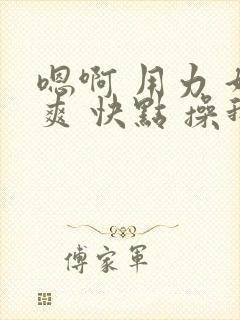 嗯啊 用力 好
爽 快點 操我
傅家軍